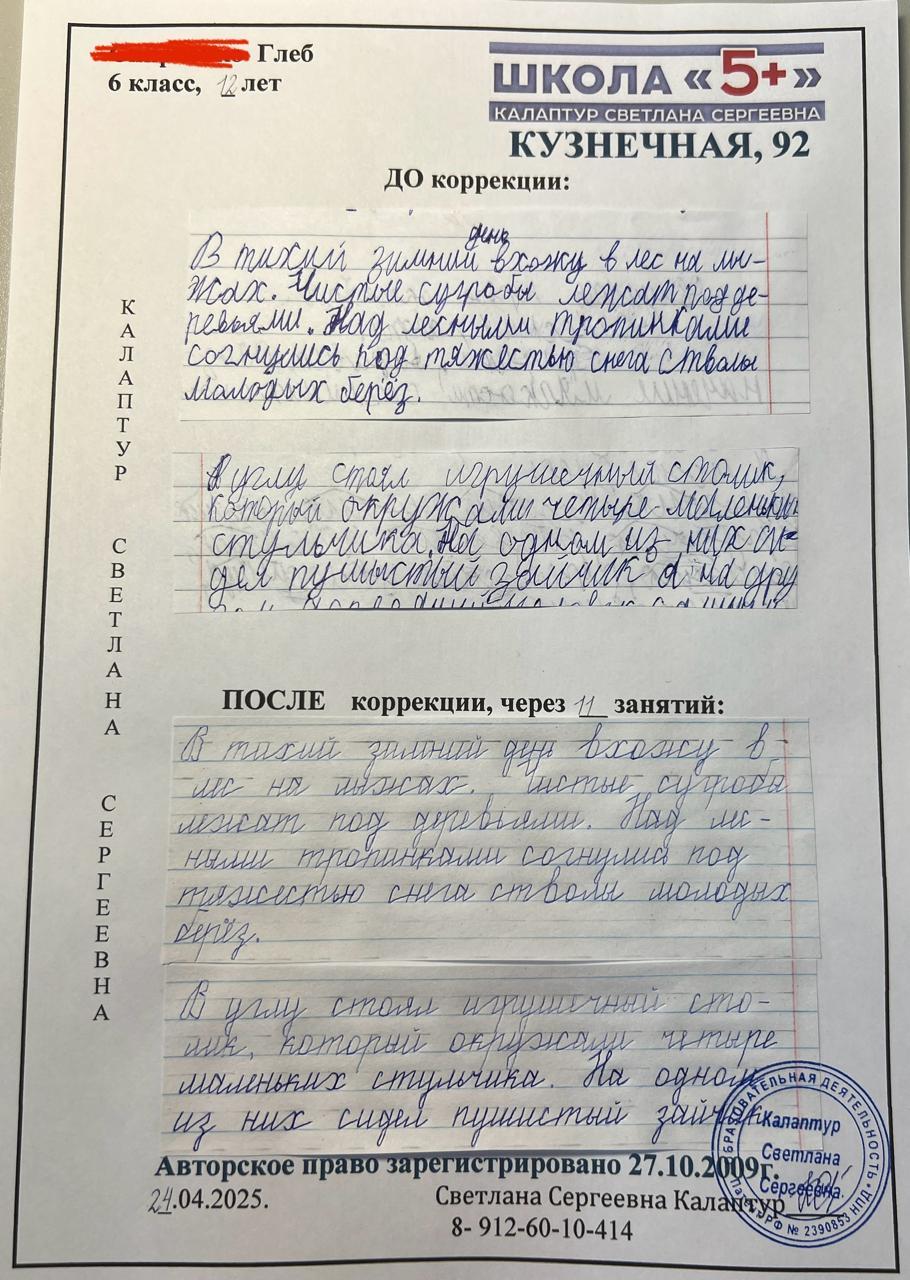 Глеб
6 класс, 12 лет
ШКОЛА «5+»
КАЛАПТУР СВЕТЛАНА СЕРГЕЕВНА
КУЗНЕЧНАЯ, 92
ДО коррекции:
КАЛАПТУР СВЕТЛАНА СЕРГЕЕВНА
день
В тихий зимний вхожу в лес на лы-
жах. Чистые сугробы лежат под де-
ревьями. Над лесными тропинками
согнулись под тяжестью снега стволы
молодых берёз.
В углу стоял игрушечный столик,
который окружали четыре маленьких
стульчика. На одном из них си-
дел пушыстый зайчик а на дру
ПОСЛЕ коррекции, через 11 занятий:
В тихий зимний день вхожу в
лес на лыжах. Чистые сугробы
лежат под деревьями. Над лес-
ными тропинками согнулись под
тяжестью снега стволы молодых
берёз.
В углу стоял игрушечный сто-
лик, который окружали четыре
маленьких стульчика. На одном
из них сидел пушистый зайчик
Авторское право зарегистрировано 27.10.2009г.
24.04.2025.
Светлана Сергеевна Калаптур
8- 912-60-10-414
ОБРАЗОВАТЕЛЬНАЯ ДЕЯТЕЛЬНОСТЬ • НПД •
Калаптур
Светлана
Сергеевна
№ 2390853